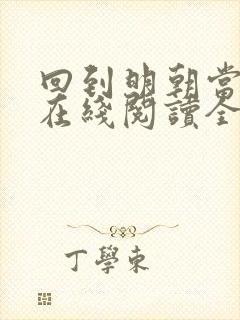 回到明朝當
在綫閱讀全
丁學東